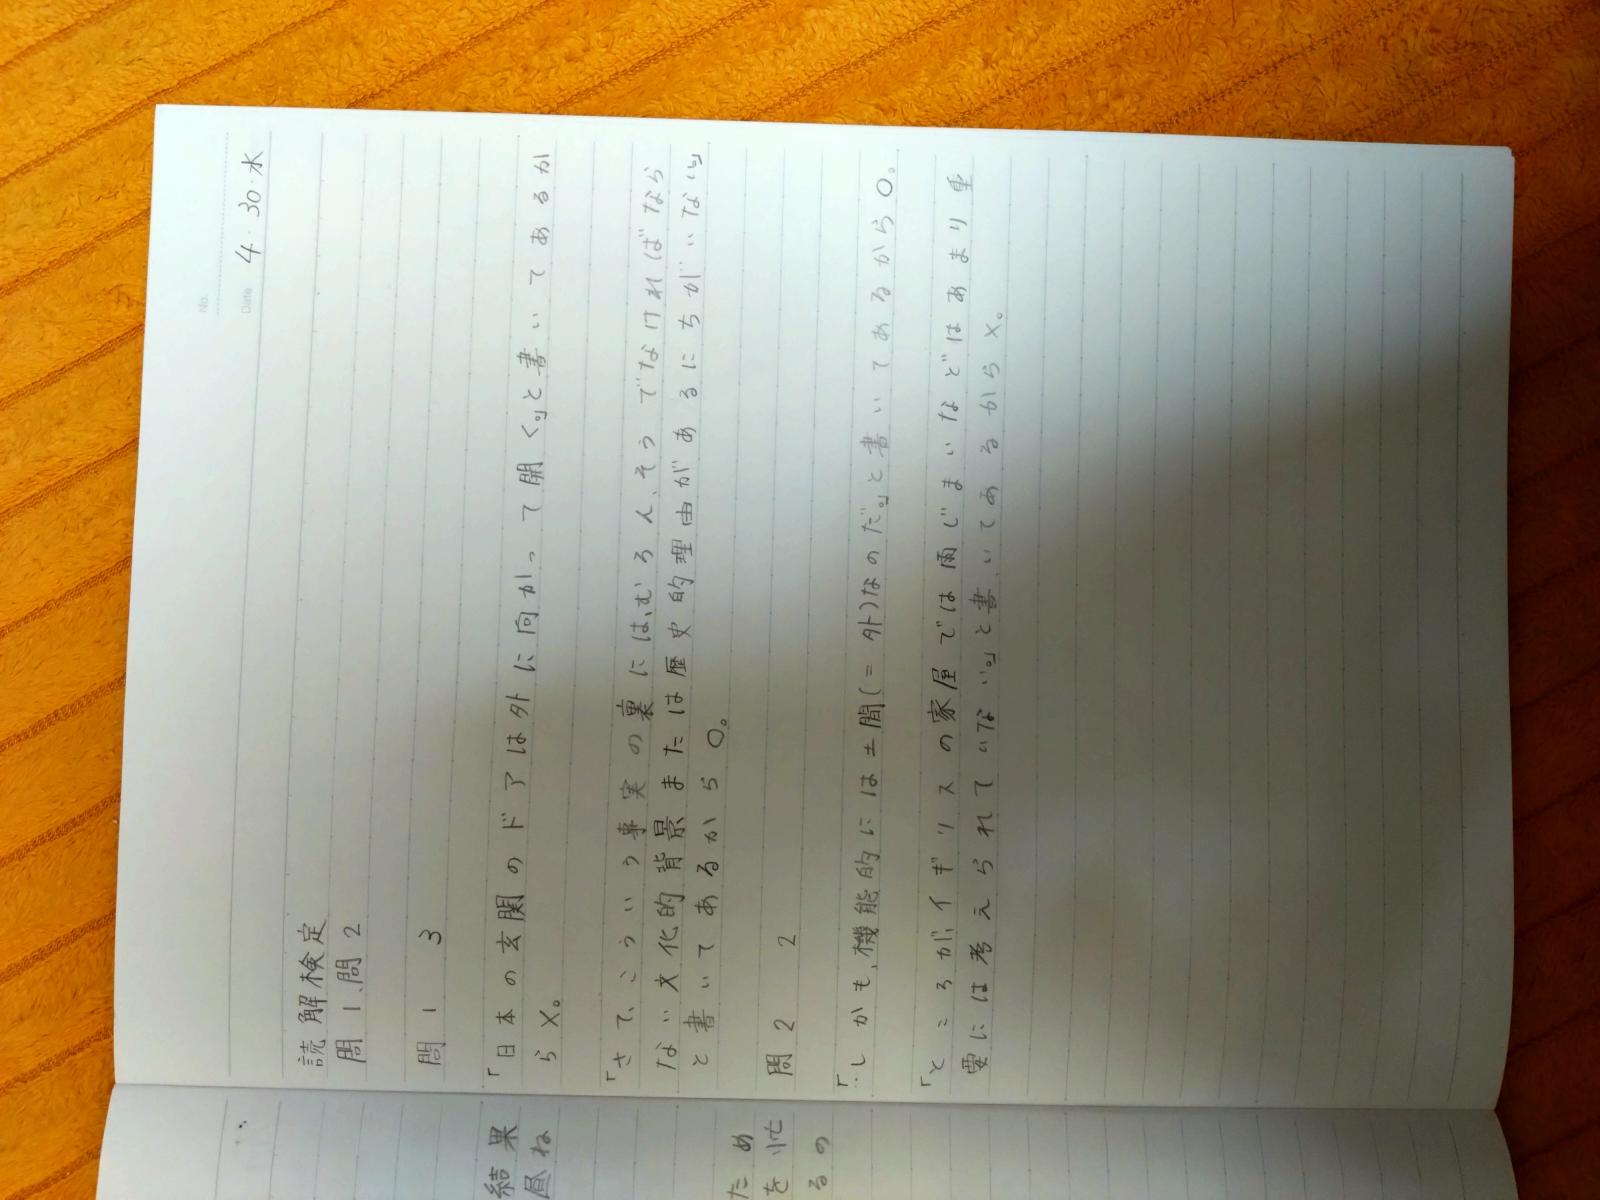 No.
Date 4・30・水
読解検定
問1、問2
問1 3
「日本の玄関のドアは外に向かって開く。」と書いてあるか
ら×。
「さて、こういう事実の裏には、むろん、そうでなければなら
ない文化的背景または歴史的理由があるにちがいない。」
と書いてあるから○。
問2 2
「…しかも、機能的には土間(=外)なのだ。」と書いてあるから○。
「ところが、イギリスの家屋では雨じまいなどはあまり重
要には考えられていない。」と書いてあるから×。
結果
昼ね
ため
を忙
るの